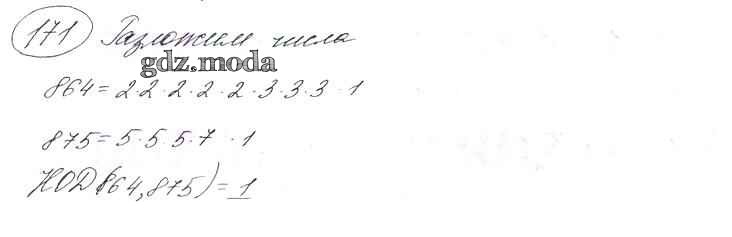 171 Разложим числа
gdz.moda
864 = 2 · 2 · 2 · 2 · 2 · 3 · 3 · 3 · 1
875 = 5 · 5 · 5 · 7 · 1
НОД (864, 875) = 1